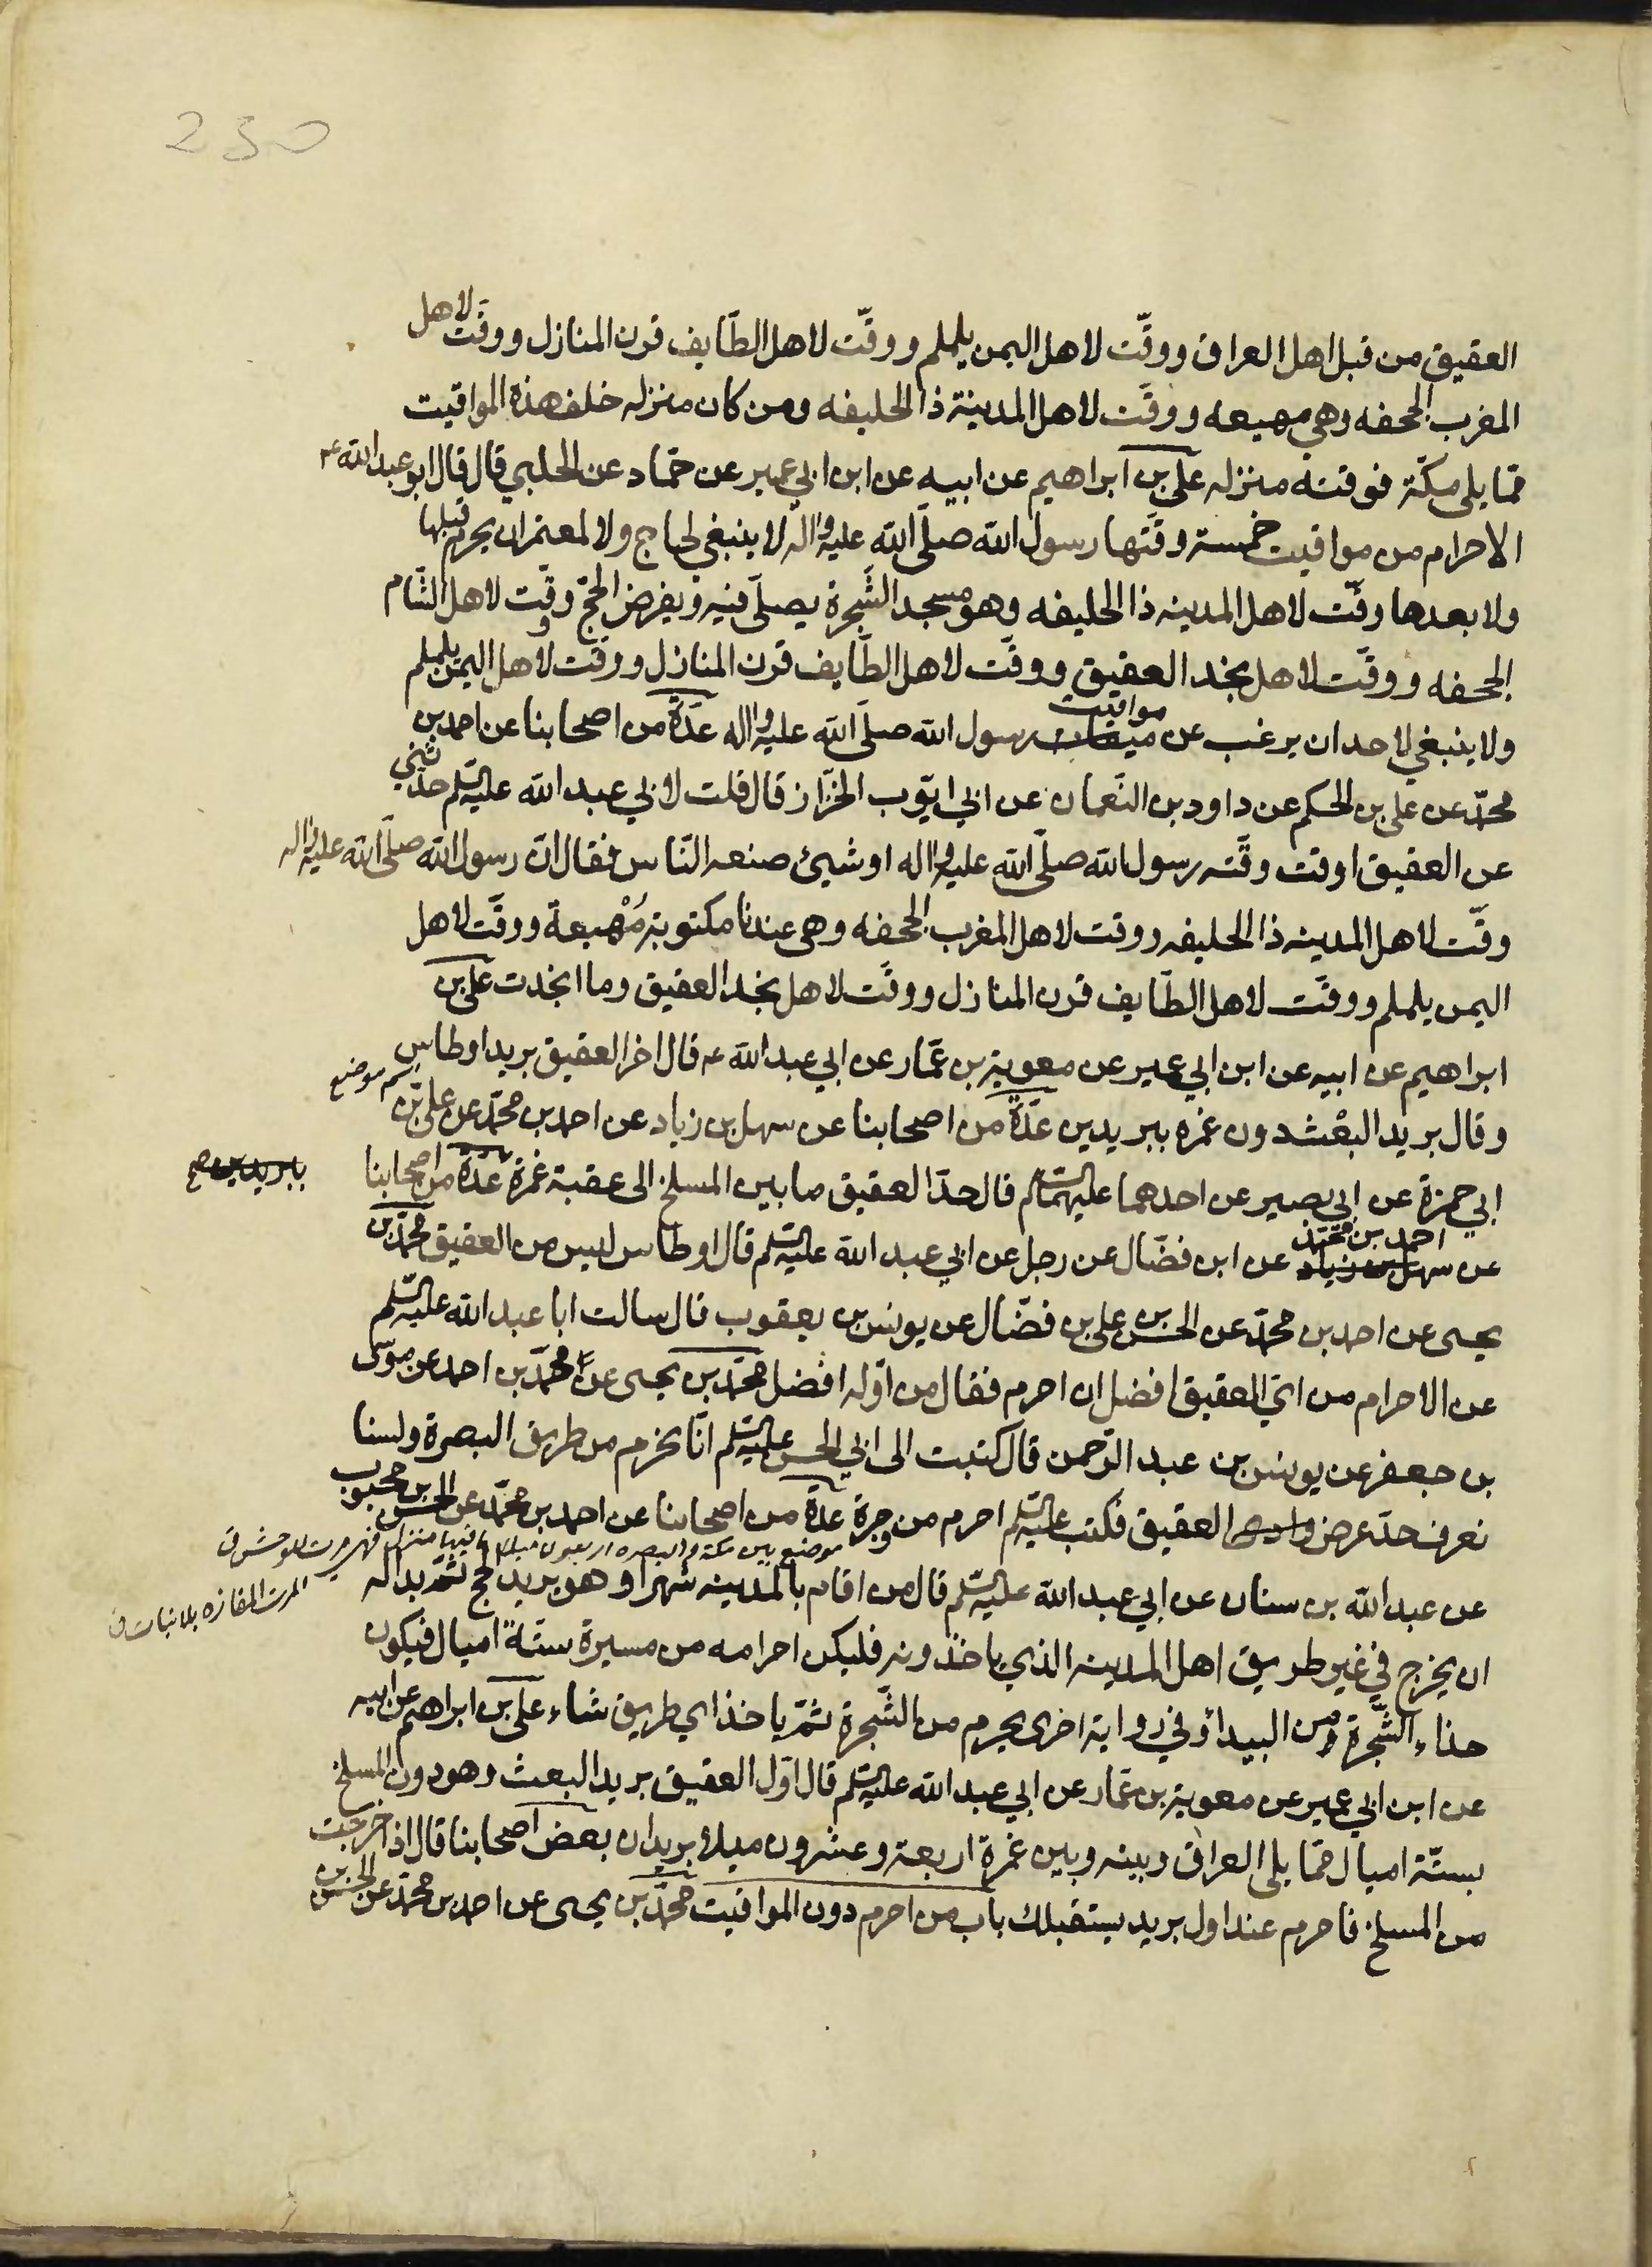 230
العقيق من قبل اهل العراق ووقّت لاهل اليمن يلملم ووقّت لاهل الطّايف قرن المنازل ووقّت لاهل
المغرب الجحفه وهي مهيعه ووقّت لاهل المدينة ذا الحليفه ومن كان منزله خلف هذه المواقيت
ممّا يلى مكّة فوقته منزله علىّ بن ابراهيم عن ابيه عن ابن ابي عمير عن حمّاد عن الحلبي قال قال ابو عبد الله عم
الاحرام من مواقيت خمسة وقّتها رسول الله صلّى الله عليه واله لا ينبغي لحاج ولا لمعتمر ان يحرم قبلها
ولا بعدها وقّت لاهل المدينه ذا الحليفه وهو مسجد الشّجرة يصلّى فيه ويفرض الحجّ ووقّت لاهل الشّام
الجحفه ووقّت لاهل نجد العقيق ووقّت لاهل الطّايف قرن المنازل ووقّت لاهل اليمن يلملم
ولا ينبغي لاحد ان يرغب عن ميقات مواقيت رسول الله صلّى الله عليه واله عدّة من اصحابنا عن احمد بن
محمّد عن على بن الحكم عن داود بن النّعمان عن ابي ايّوب الخزّاز قال قلت لابي عبد الله عليه السّلم حدّثني
عن العقيق اوقت وقّته رسول الله صلّى الله عليه واله او شيئ صنعه النّاس فقال انّ رسول الله صلّى الله عليه واله
وقّت لاهل المدينه ذا الحليفه ووقت لاهل المغرب الجحفه وهى عندنا مكتوبة مُهْيعة ووقّت لاهل
اليمن يلملم ووقّت لاهل الطّايف قرن المنازل ووقّت لاهل نجد العقيق وما انجدت علىّ بن
ابراهيم عن ابيه عن ابن ابي عمير عن معوية بن عمّار عن ابي عبد الله عم قال اخر العقيق بريد اوطاس
اسم موضع
وقال بريد البعْث دون غمره ببريدين عدّة من اصحابنا عن سهل بن زياد عن احمد بن محمّد عن علىّ بن
ابي حمزة عن ابي بصير عن احدهما عليهما السّلم قال حدّ العقيق ما بين المسلخ الى عقبة غمرة عدّة من اصحابنا
ببريدين صح
احمد بن محمّد
عن سهل بن زياد عن ابن فضّال عن رجل عن ابي عبد الله عليه السّلم قال اوطاس ليس من العقيق محمّد بن
يحيى عن احمد بن محمّد عن الحسن بن على بن فضّال عن يونس بن يعقوب قال سالت ابا عبد الله عليه السّلم
عن الاحرام من اىّ العقيق افضل ان احرم فقال من اوّله افضل محمّد بن يحيى عن محمّد بن احمد عن موسى
بن جعفر عن يونس بن عبد الرّحمن قال كتبت الى ابي الحسن عليه السّلم انّا نحرم من طريق البصرة ولسنا
نعرف حدّ عرض العقيق فكتب عليه السّلم احرم من وجرة عدّة من اصحابنا عن احمد بن محمّد عن الحسن بن محبوب
موضع بين مكة والبصره اربعون ميلا ما فيها منزل فهى مرت للوحش ق
المرت المفازه بلا نبات ق
عن عبد الله بن سنان عن ابي عبد الله عليه السّلم قال من اقام بالمدينه شهرا وهو يريد الحج ثمّ بدا له
ان يخرج في غير طريق اهل المدينه الذي ياخذونه فليكن احرامه من مسيرة ستّة اميال فيكون
حذاء الشّجرة من البيداء وفي رواية اخرى يحرم من الشّجرة ثمّ ياخذ اي طريق شاء علىّ بن ابراهيم عن ابيه
عن ابن ابي عمير عن معوية بن عمّار عن ابي عبد الله عليه السّلم قال اوّل العقيق بريد البعث وهو دون المسلخ
بستّة اميال ممّا يلى العراق وبينه وبين غمرة اربعة وعشرون ميلا بريدان بعض اصحابنا قال اذا خرجت
من المسلخ فاحرم عند اول بريد يستقبلك باب من احرم دون المواقيت محمّد بن يحيى عن احمد بن محمّد عن الحسن بن